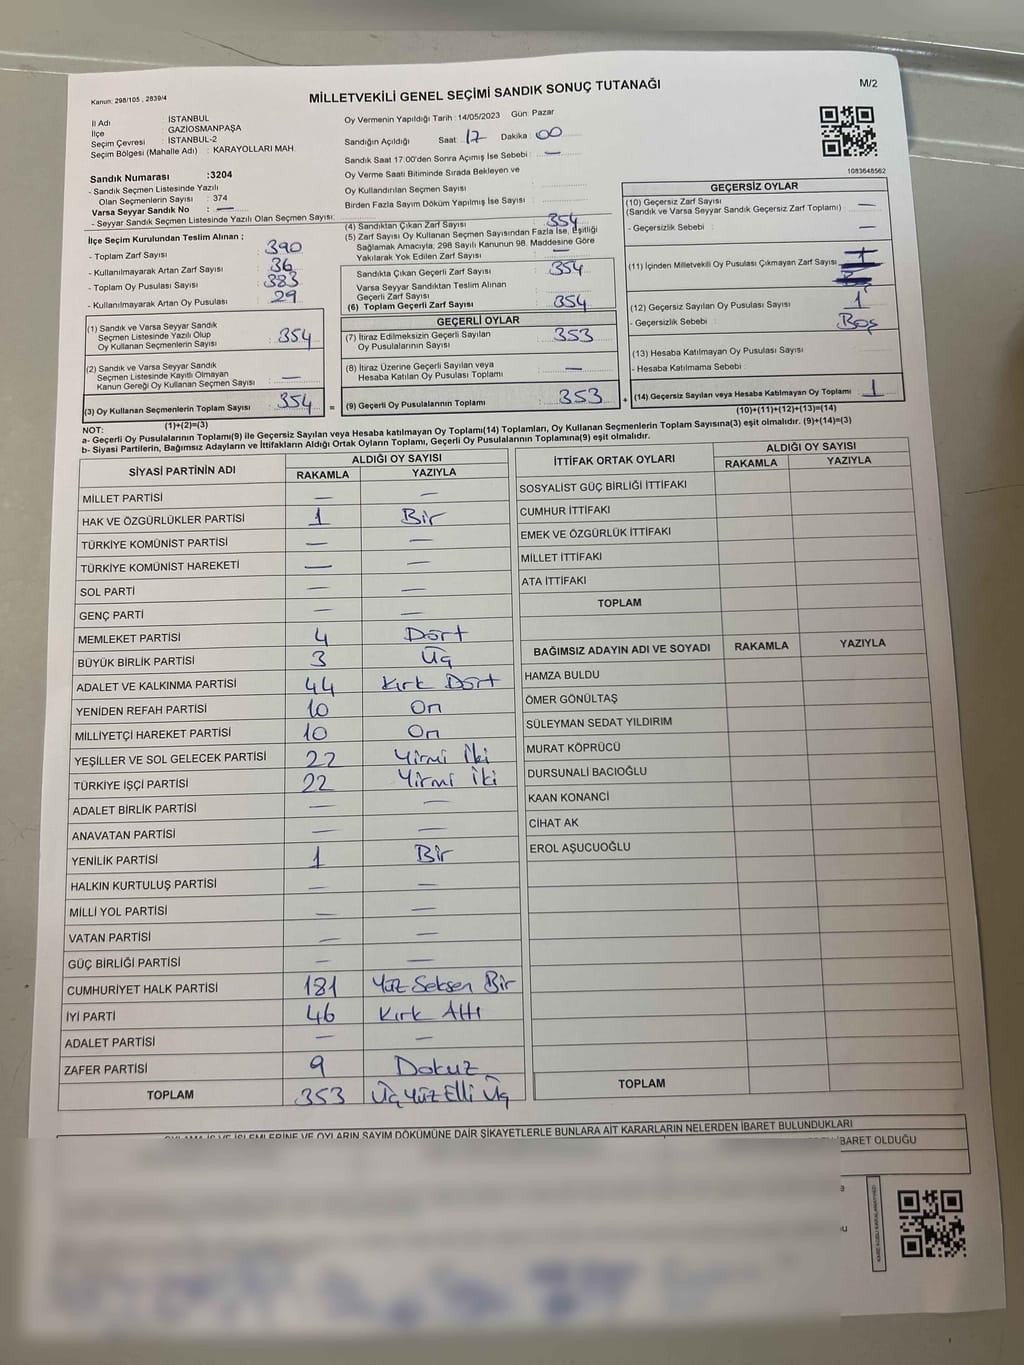 Kanun: 298/105 , 2839/4
MİLLETVEKİLİ GENEL SEÇİMİ SANDIK SONUÇ TUTANAĞI
M/2
İl Adı : İSTANBUL
İlçe : GAZİOSMANPAŞA
Seçim Çevresi : İSTANBUL-2
Seçim Bölgesi (Mahalle Adı) : KARAYOLLARI MAH.
Sandık Numarası :3204
- Sandık Seçmen Listesinde Yazılı
Olan Seçmenlerin Sayısı : 374
Varsa Seyyar Sandık No : —
- Seyyar Sandık Seçmen Listesinde Yazılı Olan Seçmen Sayısı:
Oy Vermenin Yapıldığı Tarih : 14/05/2023 Gün: Pazar
Sandığın Açıldığı Saat : 17 Dakika : 00
Sandık Saat 17:00'den Sonra Açımış İse Sebebi : —
Oy Verme Saati Bitiminde Sırada Bekleyen ve
Oy Kullandırılan Seçmen Sayısı :
Birden Fazla Sayım Döküm Yapılmış İse Sayısı :
1083648562
İlçe Seçim Kurulundan Teslim Alınan ;
- Toplam Zarf Sayısı : 390
- Kullanılmayarak Artan Zarf Sayısı : 36
- Toplam Oy Pusulası Sayısı : 383
- Kullanılmayarak Artan Oy Pusulası : 29
(1) Sandık ve Varsa Seyyar Sandık
Seçmen Listesinde Yazılı Olup
Oy Kullanan Seçmenlerin Sayısı : 354
(2) Sandık ve Varsa Seyyar Sandık
Seçmen Listesinde Kayıtlı Olmayan
Kanun Gereği Oy Kullanan Seçmen Sayısı : —
(3) Oy Kullanan Seçmenlerin Toplam Sayısı : 354
(1)+(2)=(3)
(4) Sandıktan Çıkan Zarf Sayısı : 354
(5) Zarf Sayısı Oy Kullanan Seçmen Sayısından Fazla İse, Eşitliği
Sağlamak Amacıyla; 298 Sayılı Kanunun 98. Maddesine Göre
Yakılarak Yok Edilen Zarf Sayısı : —
Sandıkta Çıkan Geçerli Zarf Sayısı : 354
Varsa Seyyar Sandıktan Teslim Alınan
Geçerli Zarf Sayısı :
(6) Toplam Geçerli Zarf Sayısı : 354
GEÇERLİ OYLAR
(7) İtiraz Edilmeksizin Geçerli Sayılan
Oy Pusulalarının Sayısı : 353
(8) İtiraz Üzerine Geçerli Sayılan veya
Hesaba Katılan Oy Pusulası Toplamı : —
= (9) Geçerli Oy Pusulalarının Toplamı : 353
GEÇERSİZ OYLAR
(10) Geçersiz Zarf Sayısı : —
(Sandık ve Varsa Seyyar Sandık Geçersiz Zarf Toplamı)
- Geçersizlik Sebebi : —
(11) İçinden Milletvekili Oy Pusulası Çıkmayan Zarf Sayısı :
(12) Geçersiz Sayılan Oy Pusulası Sayısı : 1
- Geçersizlik Sebebi : Boş
(13) Hesaba Katılmayan Oy Pusulası Sayısı :
- Hesaba Katılmama Sebebi :
+ (14) Geçersiz Sayılan veya Hesaba Katılmayan Oy Toplamı : 1
(10)+(11)+(12)+(13)=(14)
NOT:
a- Geçerli Oy Pusulalarının Toplamı(9) ile Geçersiz Sayılan veya Hesaba katılmayan Oy Toplamı(14) Toplamları, Oy Kullanan Seçmenlerin Toplam Sayısına(3) eşit olmalıdır. (9)+(14)=(3)
b- Siyasi Partilerin, Bağımsız Adayların ve İttifakların Aldığı Ortak Oyların Toplamı, Geçerli Oy Pusulalarının Toplamına(9) eşit olmalıdır.
SİYASİ PARTİNİN ADI ALDIĞI OY SAYISI
RAKAMLA YAZIYLA
MİLLET PARTİSİ — —
HAK VE ÖZGÜRLÜKLER PARTİSİ 1 Bir
TÜRKİYE KOMÜNİST PARTİSİ — —
TÜRKİYE KOMÜNİST HAREKETİ — —
SOL PARTİ — —
GENÇ PARTİ — —
MEMLEKET PARTİSİ 4 Dört
BÜYÜK BİRLİK PARTİSİ 3 Üç
ADALET VE KALKINMA PARTİSİ 44 Kırk Dört
YENİDEN REFAH PARTİSİ 10 On
MİLLİYETÇİ HAREKET PARTİSİ 10 On
YEŞİLLER VE SOL GELECEK PARTİSİ 22 Yirmi İki
TÜRKİYE İŞÇİ PARTİSİ 22 Yirmi İki
ADALET BİRLİK PARTİSİ — —
ANAVATAN PARTİSİ — —
YENİLİK PARTİSİ 1 Bir
HALKIN KURTULUŞ PARTİSİ — —
MİLLİ YOL PARTİSİ — —
VATAN PARTİSİ — —
GÜÇ BİRLİĞİ PARTİSİ — —
CUMHURİYET HALK PARTİSİ 181 Yüz Seksen Bir
İYİ PARTİ 46 Kırk Altı
ADALET PARTİSİ — —
ZAFER PARTİSİ 9 Dokuz
TOPLAM 353 Üç Yüz Elli Üç
İTTİFAK ORTAK OYLARI ALDIĞI OY SAYISI
RAKAMLA YAZIYLA
SOSYALİST GÜÇ BİRLİĞİ İTTİFAKI
CUMHUR İTTİFAKI
EMEK VE ÖZGÜRLÜK İTTİFAKI
MİLLET İTTİFAKI
ATA İTTİFAKI
TOPLAM
BAĞIMSIZ ADAYIN ADI VE SOYADI RAKAMLA YAZIYLA
HAMZA BULDU
ÖMER GÖNÜLTAŞ
SÜLEYMAN SEDAT YILDIRIM
MURAT KÖPRÜCÜ
DURSUNALİ BACIOĞLU
KAAN KONANCİ
CİHAT AK
EROL AŞUCUOĞLU
TOPLAM
OYLAMA İŞ VE İŞLEMLERİNE VE OYLARIN SAYIM DÖKÜMÜNE DAİR ŞİKAYETLERLE BUNLARA AİT KARARLARIN NELERDEN İBARET BULUNDUKLARI
İBARET OLDUĞU